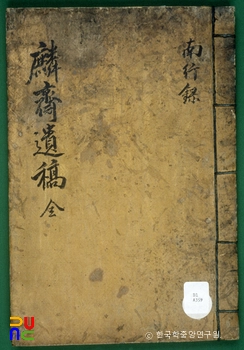 南行錄
麟齋遺稿 全
© 한국학중앙연구원